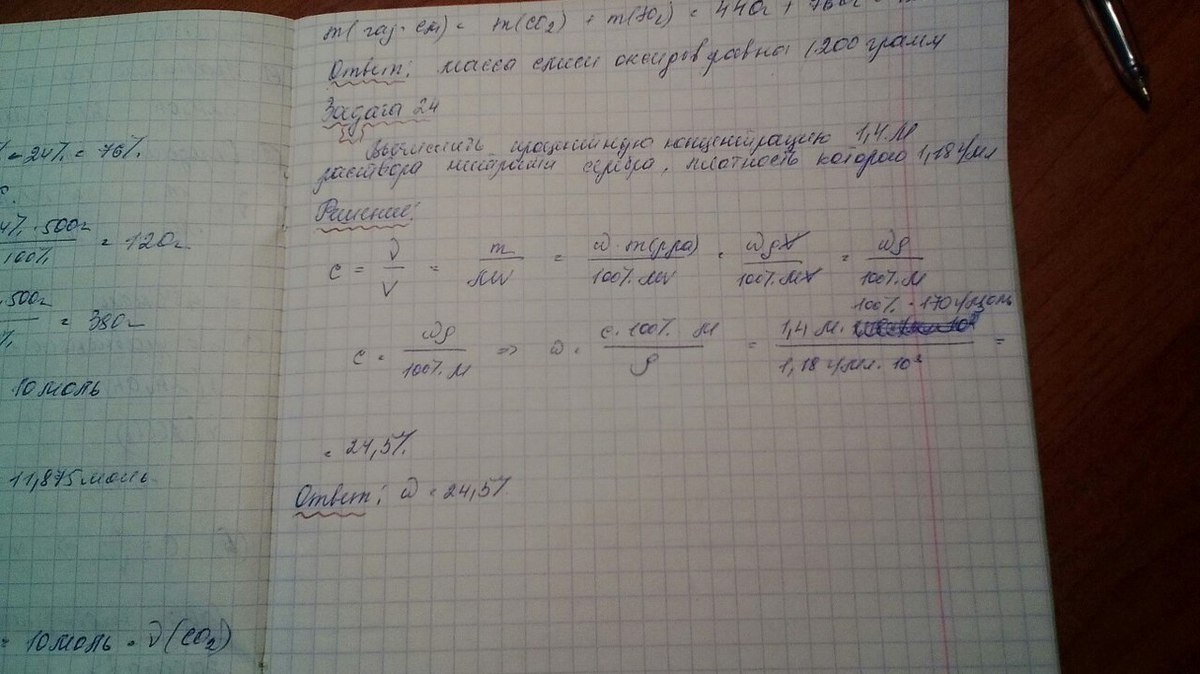 - 24% = 76%
4% · 500г
100% = 120г
500г
% = 380г
10 моль
11,875 моль
= 10 моль = ν(CO₂)
m(газ. см) = m(CO₂) + m(SO₂) = 440г + 760г =
Ответ: масса смеси оксидов равна 1200 грамм
Задача 24
Вычислить процентную концентрацию 1,4 М
раствора нитрата серебра, плотность которого 1,18 г/мл
Решение:
c = ν/V = m/MV = ω · m(р-ра)/100% · MV = ωρV/100% · MV = ωρ/100% · M
c = ωρ/100% · M => ω = c · 100% · M/ρ = 1,4 М · 100% · 170 г/моль/1,18 г/мл · 10³ =
= 24,5%
Ответ: ω = 24,5%